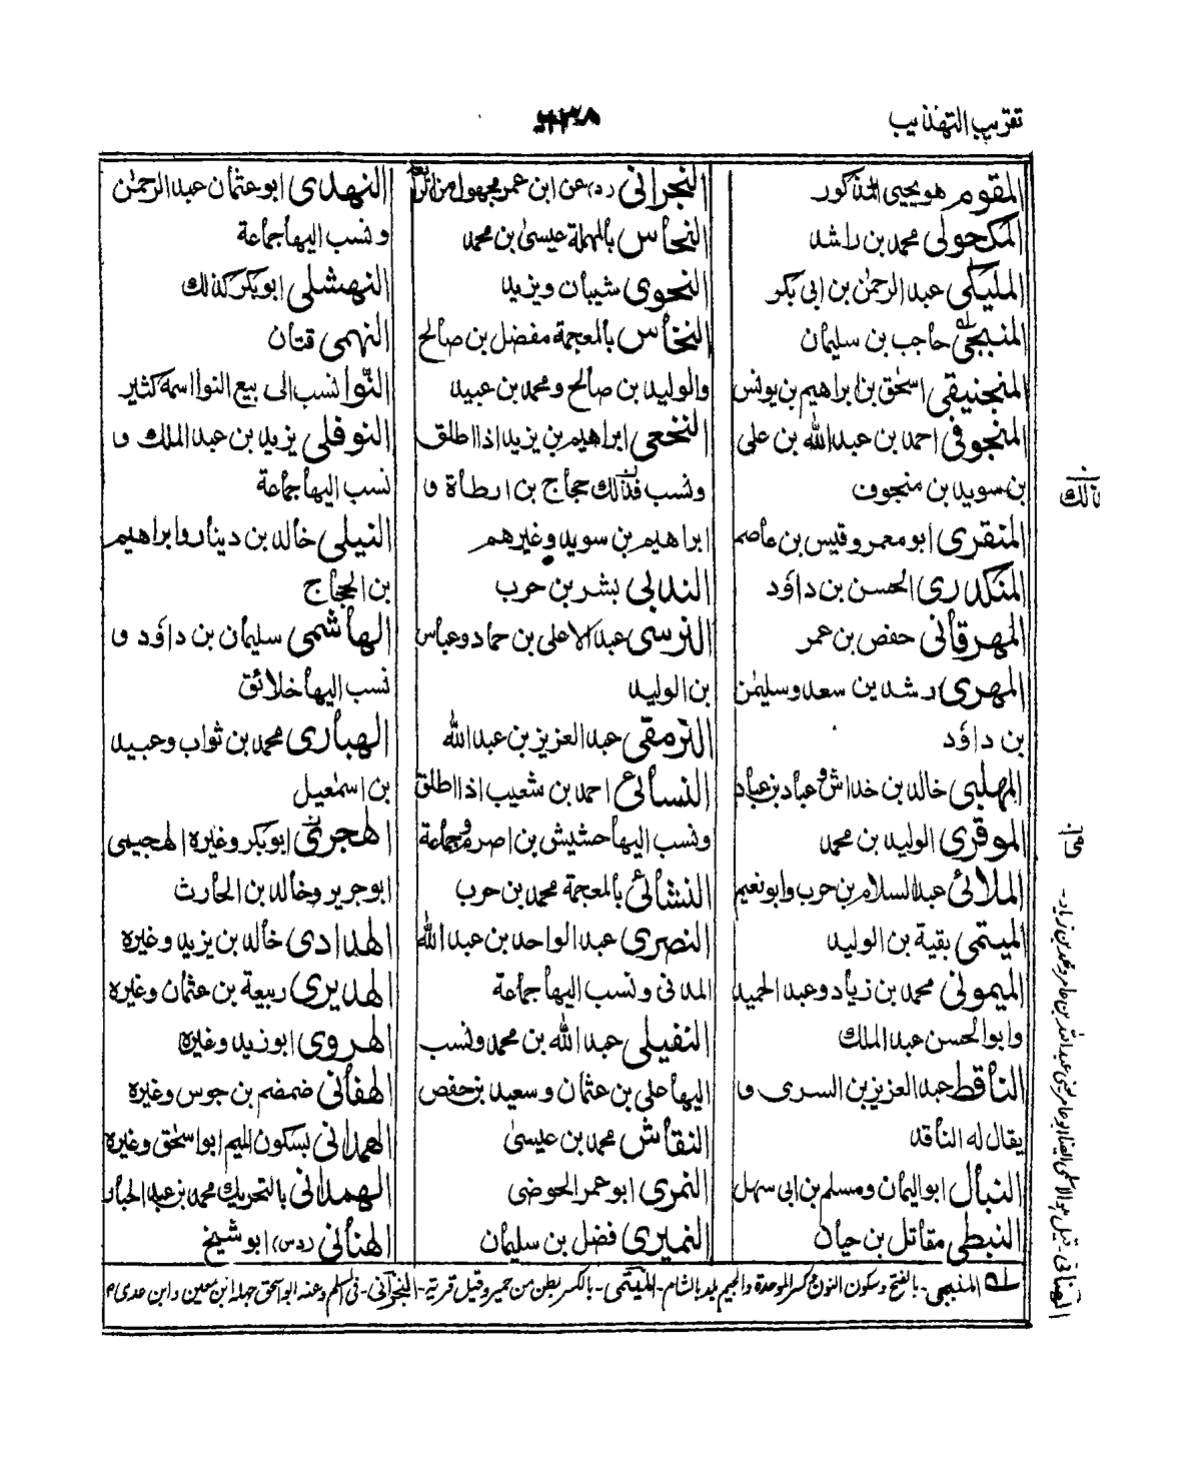 تقريب التهذيب
المقوم هو يحيى المذكور
المكحولى محمد بن راشد
المليكى عبد الرحمٰن بن ابى بكر
المنبجى حاجب بن سليمان
المنجنيقى اسحٰق بن ابراهيم بن يونس
المنجوفى احمد بن عبد الله بن على
بن سويد بن منجوف
المنقرى ابو معمر وقيس بن عاصم
المنكدرى الحسن بن داؤد
المهرقانى حفص بن عمر
المهرى رشد ين سعد وسليمٰن
بن داؤد
المهلبى خالد بن خداش وعباد بن عباد
الموقرى الوليد بن محمد
الملائى عبد السلام بن حرب وابو نعيم
الميتمى بقية بن الوليد
الميمونى محمد بن زياد وعبد الحميد
وابو الحسن عبد الملك
الناقط عبد العزيز بن السرى و
يقال له الناقد
النبال ابو اليمان ومسلم بن ابى سهل
النبطى مقاتل بن حيان
النجرانى (د) عن ابن عمر مجهول من
النحاس بالمهملة عيسىٰ بن محمد
النحوى شيبان ويزيد
النخاس بالمعجمة مفضل بن صالح
والوليد بن صالح ومحمد بن عبيد
النخعى ابراهيم بن يزيد اذا اطلق
ونسب كذلك حجاج بن ارطأة و
ابراهيم بن سويد وغيرهم
الندبى بشر بن حرب
النرسى عبد الاعلى بن حماد وعباس
بن الوليد
النرمقى عبد العزيز بن عبد الله
النسائى احمد بن شعيب اذا اطلق
ونسب اليها حشيش بن اصرم وجماعة
النشائى بالمعجمة محمد بن حرب
النصرى عبد الواحد بن عبد الله
المدنى ونسب اليها جماعة
النفيلى عبد الله بن محمد ونسب
اليها على بن عثمان وسعيد بن حفص
النقاش محمد بن عيسىٰ
النمرى ابو عمر الحوضى
النميرى فضل بن سليمان
النهدى ابو عثمان عبد الرحمٰن
ونسب اليها جماعة
النهشلى ابو بكر كذلك
النهمى قتان
النوا نسب الى بيع النوا اسمه كثير
النوفلى يزيد بن عبد الملك و
نسب اليها جماعة
النيلى خالد بن دينار وابراهيم
بن الحجاج
الهاشمى سليمان بن داؤد و
نسب اليها خلائق
الهبارى محمد بن ثواب وعبيد
بن اسمٰعيل
الهجرى ابو بكر وغيره الهجيمى
ابو جرير وخالد بن الحارث
الهدادى خالد بن يزيد وغيره
الهديرى ربيعة بن عثمان وغيره
الهروى ابو زيد وغيره
الهفانى ضمضم بن جوس وغيره
الهمدانى بسكون الميم ابو اسحٰق وغيره
الهمدانى بالتحريك محمد بن عبد الجبار
الهنائى (دس) ابو شيخ
المنبجى - بالفتح وسكون النون وكسر الموحدة والجيم بلد بالشام - الميتمى - بالكسر بطن من حمير وقيل قرية - النجرانى - فى السلم وعنه ابو اسحق جهله ابن معين وابن عدى